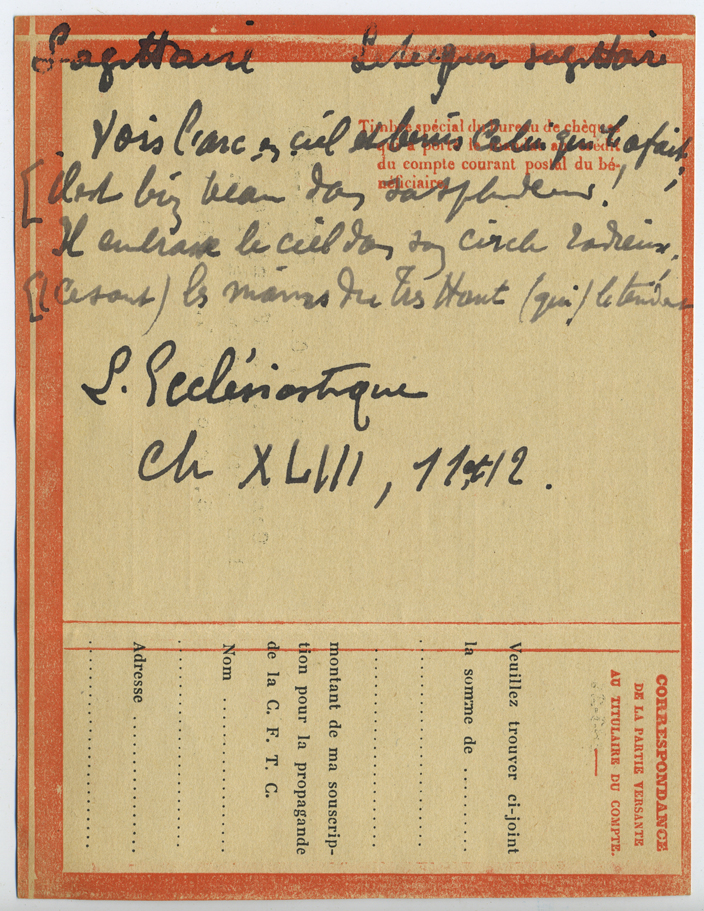 Sagittaire    sagittaire
Vois l'arc en ciel et bénis Celui qui l'a fait,
[il est bien beau dans sa splendeur!
Il embrasse le ciel dans son cercle radieux,
[(ce sont) les mains du Très Haut (qui) le tendent
L'Ecclésiastique
Ch XLIII, 11 et 12.
Timbre spécial du bureau de chèques
qui a porté la somme au crédit
du compte courant postal du bé-
néficiaire
CORRESPONDANCE
DE LA PARTIE VERSANTE
AU TITULAIRE DU COMPTE.
Veuillez trouver ci-joint
la somme de
montant de ma souscrip-
tion pour la propagande
de la C. F. T. C.
Nom
Adresse